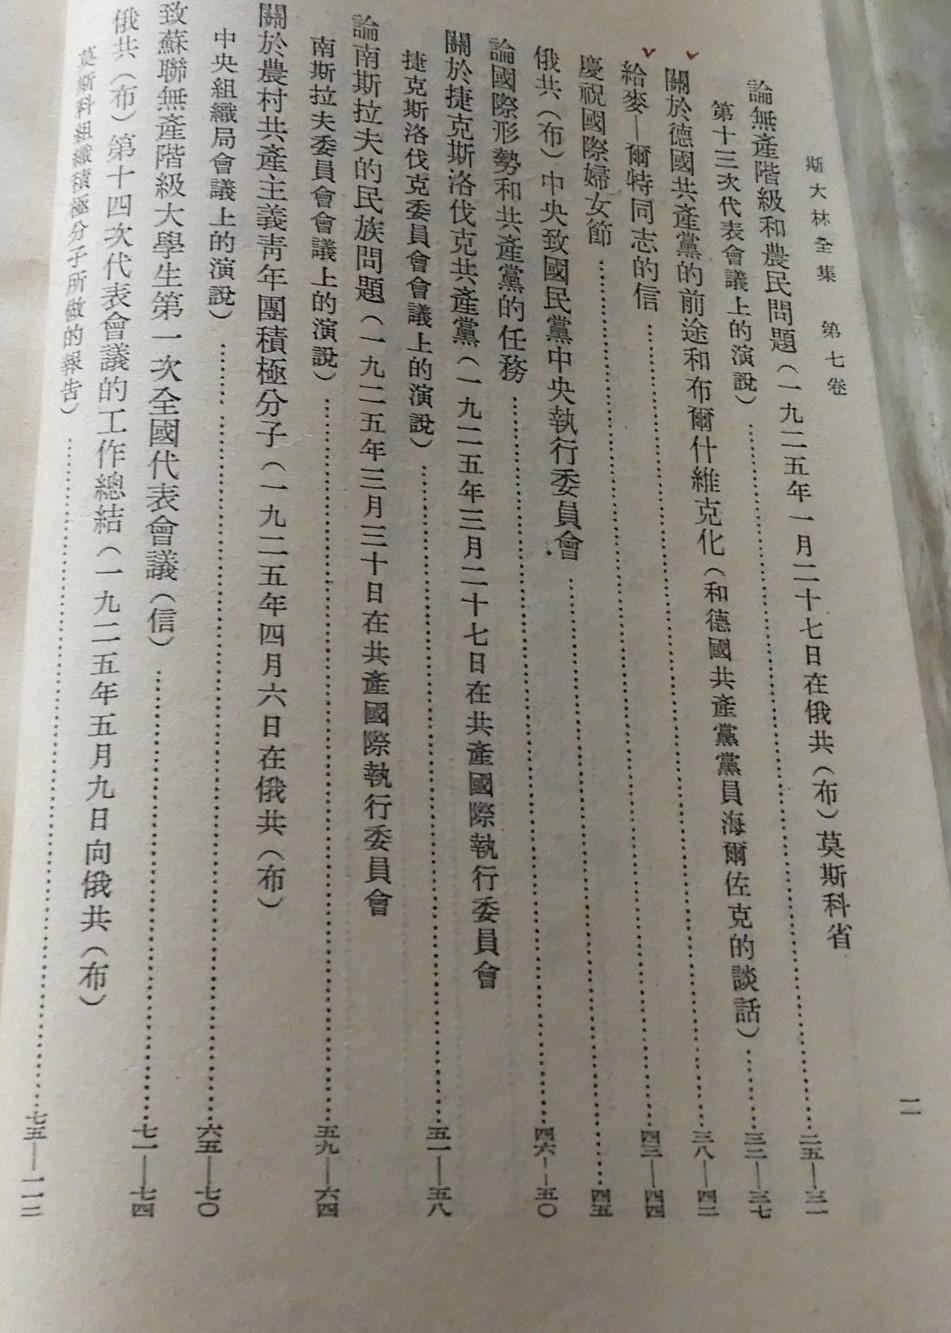 二
斯大林全集 第七卷
論無產階級和農民問題(一九二五年一月二十七日在俄共(布)莫斯科省
第十三次代表會議上的演說)……二五—三一
關於德國共產黨的前途和布爾什維克化(和德國共產黨黨員海爾佐克的談話)……三二—三七
給麥—爾特同志的信……三八—四二
慶祝國際婦女節……四三—四四
俄共(布)中央致國民黨中央執行委員會……四五
論國際形勢和共產黨的任務……四六—五〇
關於捷克斯洛伐克共產黨(一九二五年三月二十七日在共產國際執行委員會
捷克斯洛伐克委員會會議上的演說)……五一—五八
論南斯拉夫的民族問題(一九二五年三月三十日在共產國際執行委員會
南斯拉夫委員會會議上的演說)……五九—六四
關於農村共產主義青年團積極分子(一九二五年四月六日在俄共(布)
中央組織局會議上的演說)……六五—七〇
致蘇聯無產階級大學生第一次全國代表會議(信)……七一—七四
俄共(布)第十四次代表會議的工作總結(一九二五年五月九日向俄共(布)
莫斯科組織積極分子所做的報告)……七五—一一二